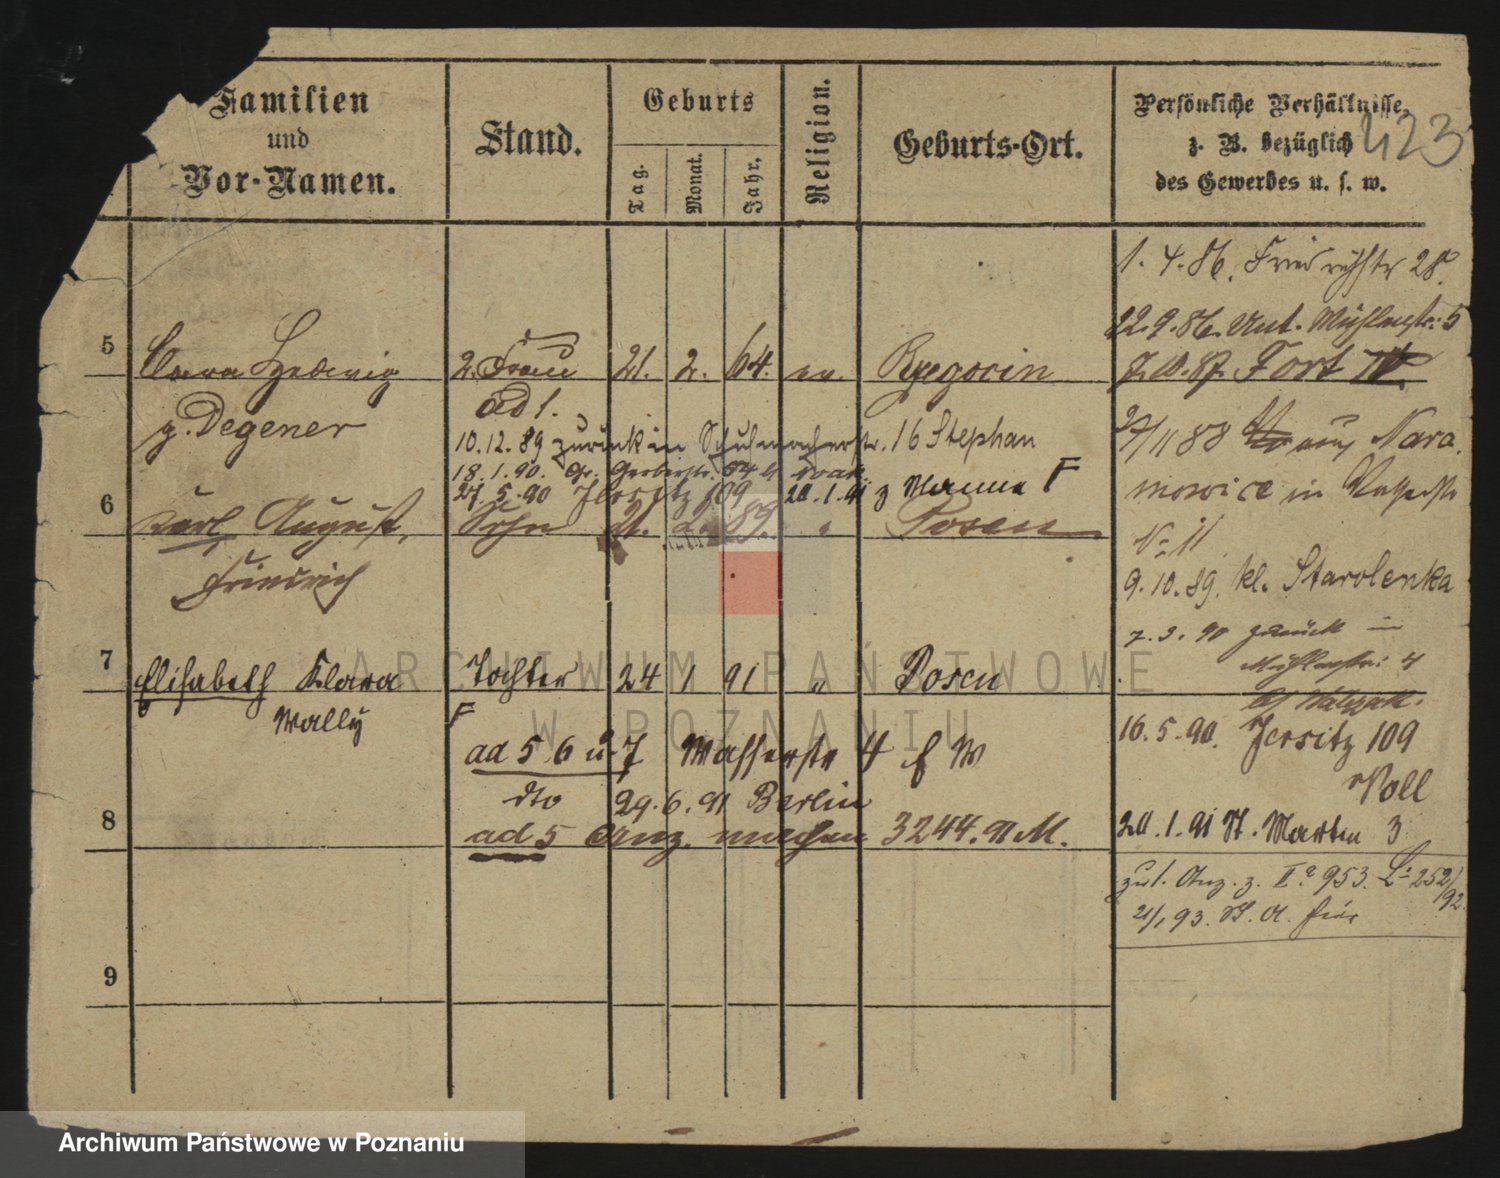 Familien
und
Vor-Namen.
Stand.
Geburts
Tag.
Monat.
Jahr.
Religion.
Geburts-Ort.
Persönliche Verhältnisse,
z. B. bezüglich
des Gewerbes u. s. w.
423
1. 4. 86. Friedrichstr 28.
22. 9. 86. Unt. Mühlenstr. 5
5 Clara Hedwig 2. Frau 21. 2. 64. ev. Ryegocin
Fort IV.
g. Degener ad 1.
10. 12. 89 zurück in Schuhmacherstr. 16 Stephan
88 Nara
18. 1. 90. Gr. Gerberstr.
mowice in
27. 5. 90 Jersitz 109 20. 1. 91 z Manne F
6 Karl August, Sohn 21. 2. 89. " Posen
No 11
Friedrich
9. 10. 89. kl. Starolenka
7. 3. 90 zurück in
Mühlenstr. 4
7 Elisabeth Klara Tochter 24 1 91 " Posen
Wally F
16. 5. 90. Jersitz 109
Noll
ad 5 6 u 7 Wasserstr 4 b W
dto 29. 6. 91 Berlin
8 ad 5 Anz. machen 3244. 91 M.
20. 1. 91 St. Martin 3
zul. Anz. z. IIa 953. 252/92.
21/1 93. St. A. hier
9
ARCHIWUM PAŃSTWOWE
W POZNANIU
Archiwum Państwowe w Poznaniu